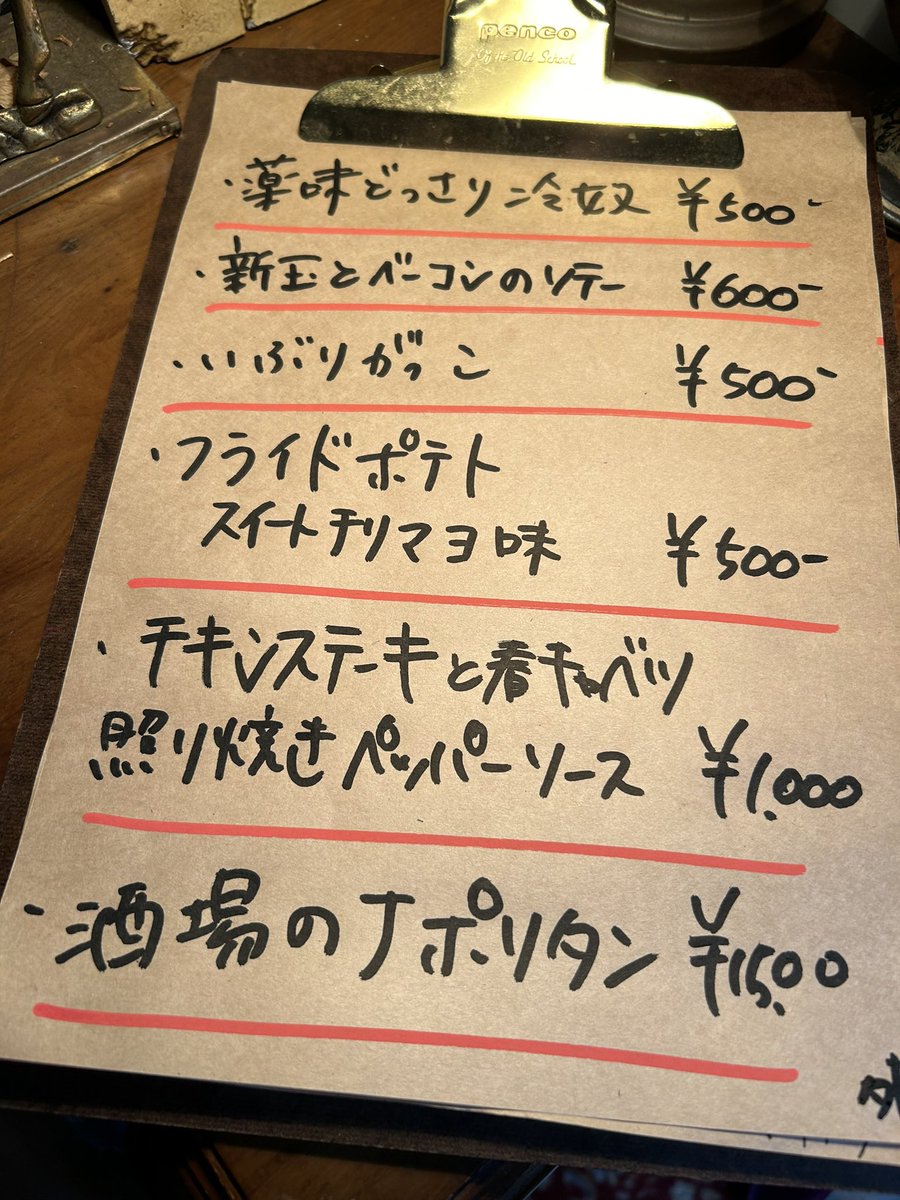 penco
Of the Old School.
・薬味どっさり冷奴 ¥500-
・新玉とベーコンのソテー ¥600-
・いぶりがっこ ¥500-
・フライドポテト
スイートチリマヨ味 ¥500-
・チキンステーキと春キャベツ
照り焼きペッパーソース ¥1.000
・酒場のナポリタン ¥15.00